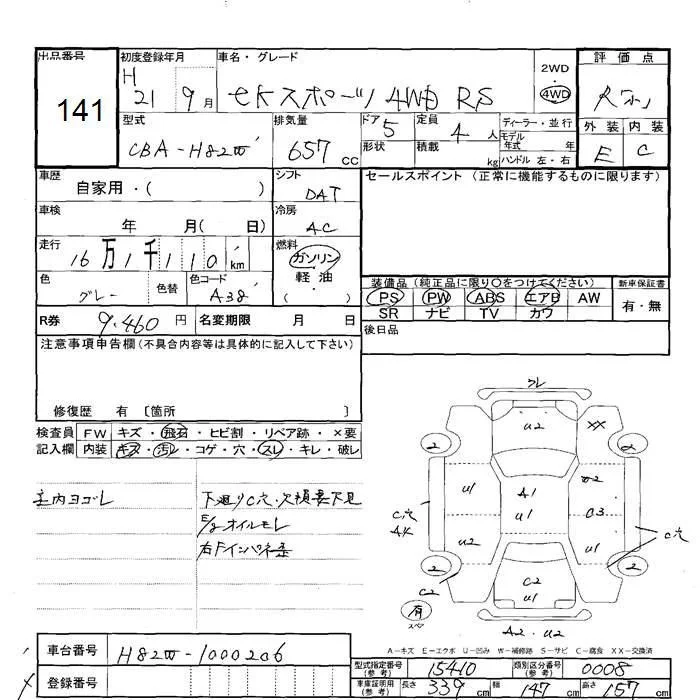 出品番号
141
初度登録年月
H
21 9月
車名・グレード
eKスポーツ 4WD RS
2WD
・
4WD
評価点
外装 内装
E C
型式
CBA-H82W
排気量
657 cc
ドア 5
形状
定員 4 人
積載 kg
ディーラー・並行
モデル年式 年
ハンドル 左・右
車歴
自家用・( )
シフト
DAT
セールスポイント(正常に機能するものに限ります)
車検
年 月( 日)
冷房
AC
走行
16万1千110km
燃料
ガソリン
軽油
( )
色
グレー
色替
色コード
A38
装備品(純正品に限り○をつけてください)
PS PW ABS エアB AW
SR ナビ TV カワ
新車保証書
有・無
R券 9.460 円
名変期限 月 日
後日品
注意事項申告欄(不具合内容等は具体的に記入して下さい)
修復歴 有 〔箇所 〕
検査員 FW キズ・飛石・ヒビ割・リペア跡・×要
記入欄 内装 キズ・汚レ・コゲ・穴・スレ・キレ・破レ
室内ヨゴレ
下廻りC穴・欠損
E/gオイルモレ
右Fインパネ
フレ
U2
XX
2
U1
A1
U1
U2
C穴
B3
U1
C穴
U2
2
2
C2
C2
U1
有
スペア
A2.U2
A-キズ E-エクボ U-凹み W-補修跡 S-サビ C-腐食 XX-交換済
車台番号 H82W-1000206
登録番号
型式指定番号(参考) 15410
類別区分番号(参考) 0008
車庫証明用(参考) 長さ 339 cm 幅 147 cm 高さ 157 cm